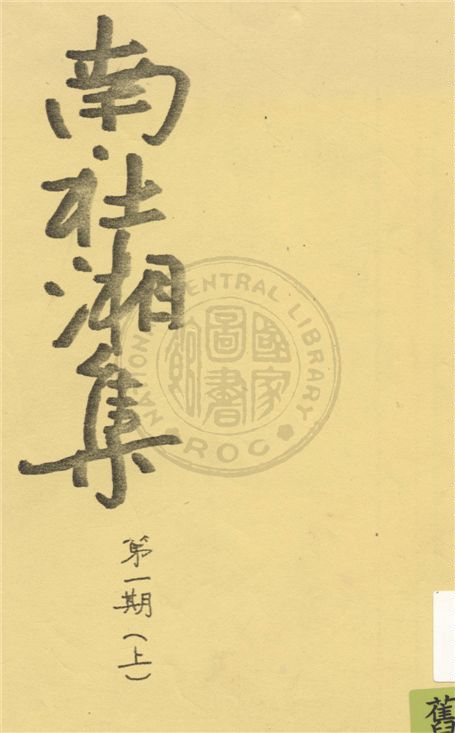 南社湘集
第一期(上)
NATIONAL CENTRAL LIBRARY
ROC
國家
圖書
館
舊